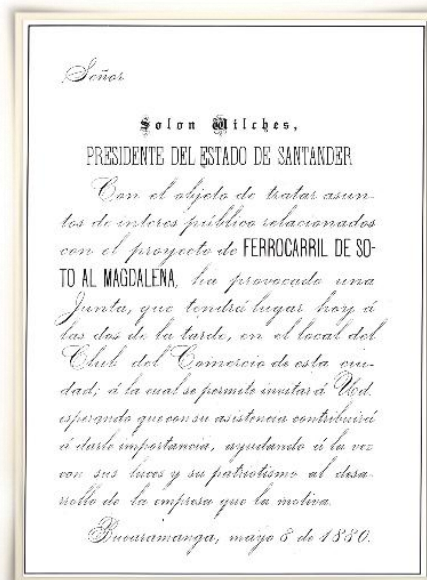 Señor
Solon Wilches,
PRESIDENTE DEL ESTADO DE SANTANDER
Con el objeto de tratar asun-
tos de interes público relacionados
con el proyecto de FERROCARRIL DE SO-
TO AL MAGDALENA, ha provocado una
Junta, que tendrá lugar hoy á
las dos de la tarde, en el local del
Club del Comercio de esta ciu-
dad; á la cual se permite invitar á Ud.
esperando que con su asistencia contribuirá
á darle importancia, ayudando á la vez
con sus luces y su patriotismo al desa-
rrollo de la empresa que la motiva.
Bucaramanga, mayo 8 de 1880.